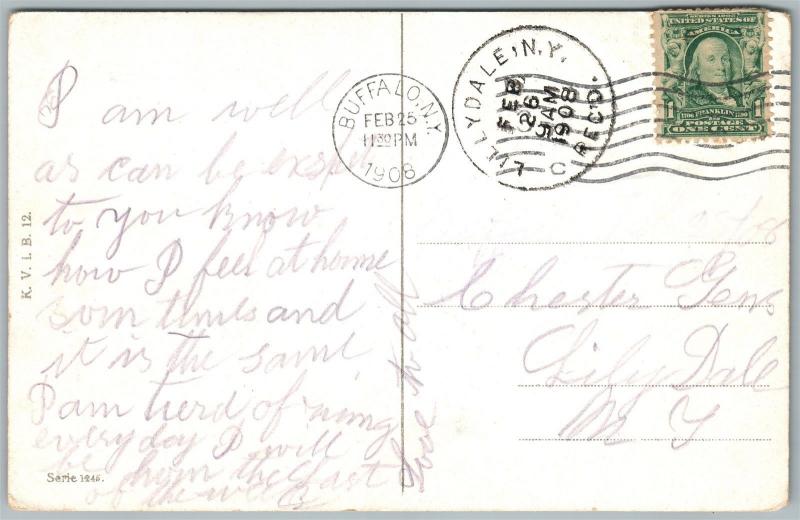 I am well
as can be
to you know
how I feel at home
som times and
it is the same
I am tierd of
everyday I will
be hom the last
of the week
Love to all
K. V. i. B. 12.
Serie 1245.
BUFFALO, N.Y.
FEB 25
11 30 PM
1908
LILLYDALE, N.Y.
FEB
26
9AM
1908
REC'D.
7 C
SERIES 1902
UNITED STATES OF
AMERICA
1706 FRANKLIN 1790
1
POSTAGE
ONE CENT
Chester
Lily Dale
N Y